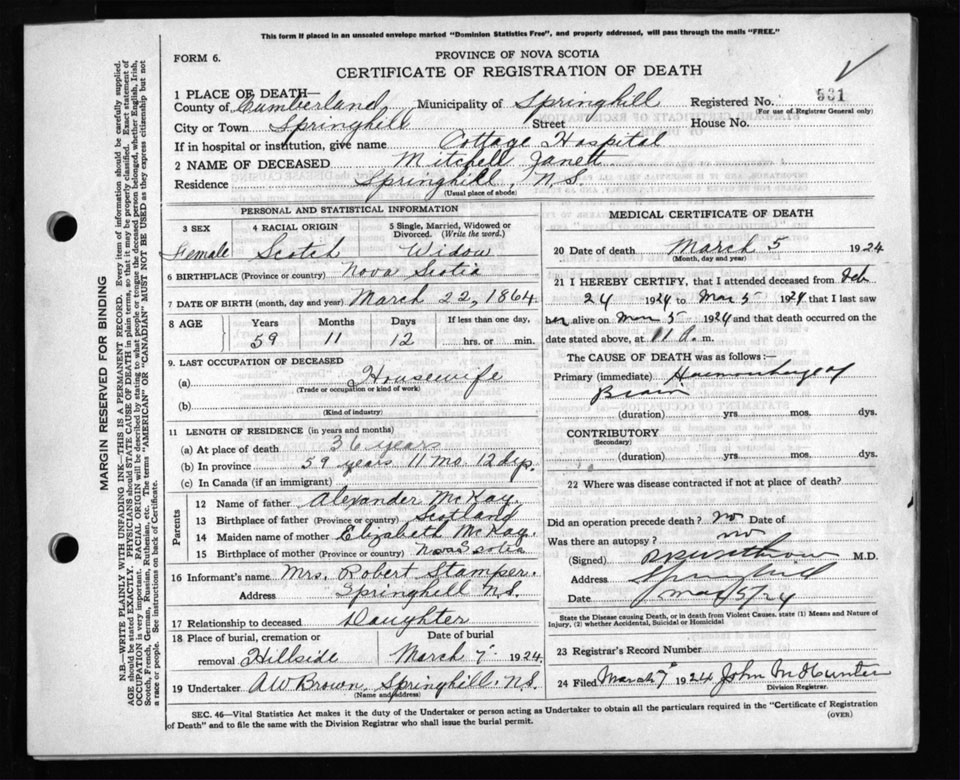 This form if placed in an unsealed envelope marked "Dominion Statistics Free", and properly addressed, will pass through the mails "FREE."
FORM 6.
PROVINCE OF NOVA SCOTIA
CERTIFICATE OF REGISTRATION OF DEATH
1 PLACE OF DEATH—
County of Cumberland, Municipality of Springhill Registered No. 931
(For use of Registrar General only)
City or Town Springhill Street House No.
If in hospital or institution, give name Cottage Hospital
2 NAME OF DECEASED Mitchell Janett
Residence Springhill, N.S.
(Usual place of abode)
PERSONAL AND STATISTICAL INFORMATION
3 SEX 4 RACIAL ORIGIN 5 Single, Married, Widowed or Divorced. (Write the word.)
Female Scotch Widow
6 BIRTHPLACE (Province or country) Nova Scotia
7 DATE OF BIRTH (month, day and year) March 22, 1864
8 AGE Years Months Days If less than one day,
59 11 12 hrs. or min.
9. LAST OCCUPATION OF DECEASED
(a) Housewife
(Trade or occupation or kind of work)
(b)
(Kind of industry)
11 LENGTH OF RESIDENCE (in years and months)
(a) At place of death 36 years
(b) In province 59 years 11 ms. 12 dys.
(c) In Canada (if an immigrant)
Parents
12 Name of father Alexander McKay.
13 Birthplace of father (Province or country) Scotland
14 Maiden name of mother Elizabeth McKay.
15 Birthplace of mother (Province or country) Nova Scotia
16 Informant's name Mrs. Robert Stamper.
Address Springhill N.S.
17 Relationship to deceased Daughter
18 Place of burial, cremation or Date of burial
removal Hillside March 7 1924
19 Undertaker A W Brown, Springhill, N.S.
(Name and address)
MEDICAL CERTIFICATE OF DEATH
20 Date of death March 5 1924
(Month, day and year)
21 I HEREBY CERTIFY, that I attended deceased from Feb
24 1924 to Mar 5 1924 that I last saw
her alive on Mar 5 1924 and that death occurred on the
date stated above, at 11 A. m.
The CAUSE OF DEATH was as follows:—
Primary (immediate) Haemorrhage of
Brain
(duration) yrs mos. dys.
CONTRIBUTORY
(Secondary)
(duration) yrs. mos. dys.
22 Where was disease contracted if not at place of death?
Did an operation precede death? no Date of
Was there an autopsy? no
(Signed) M.D.
Address Springhill
Date Mar/5/24
State the Disease causing Death, or in death from Violent Causes. state (1) Means and Nature of Injury, (2) whether Accidental, Suicidal or Homicidal
23 Registrar's Record Number
24 Filed March 7 1924 John McHunter
Division Registrar.
SEC. 46—Vital Statistics Act makes it the duty of the Undertaker or person acting as Undertaker to obtain all the particulars required in the "Certificate of Registration
of Death" and to file the same with the Division Registrar who shall issue the burial permit.
(OVER)
MARGIN RESERVED FOR BINDING
N.B.—WRITE PLAINLY WITH UNFADING INK—THIS IS A PERMANENT RECORD. Every item of information should be carefully supplied.
AGE should be stated EXACTLY. PHYSICIANS should STATE CAUSE OF DEATH in plain terms, so that it may be properly classified. Exact statement of
OCCUPATION is very important. RACIAL ORIGIN will be described by stating to what people or tongue the deceased person belonged, whether English, Irish,
Scotch, French, German, Russian, Ruthenian, etc. The terms "AMERICAN" OR "CANADIAN" MUST NOT BE USED as they express citizenship but not
a race or people. See instructions on back of Certificate.